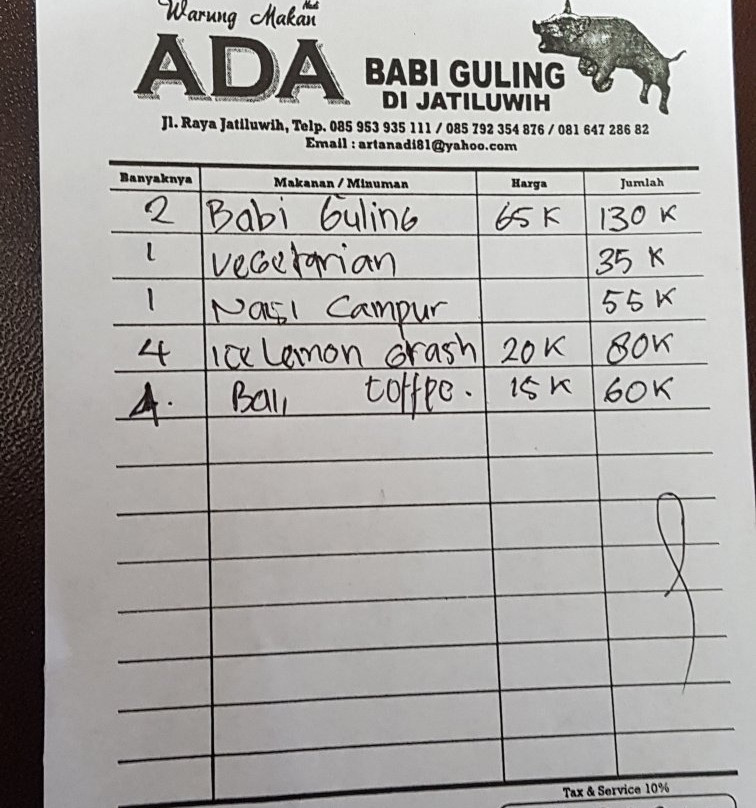 Warung Makan
ADA BABI GULING
DI JATILUWIH
Jl. Raya Jatiluwih, Telp. 085 953 935 111 / 085 792 354 876 / 081 647 286 82
Email : artanadi81@yahoo.com
Banyaknya Makanan / Minuman Harga Jumlah
2 Babi Guling 65 K 130 K
1 Vegetarian 35 K
1 Nasi Campur 55 K
4 Ice Lemon Grash 20 K 80K
4. Bali Coffee. 15 K 60 K
Tax & Service 10%